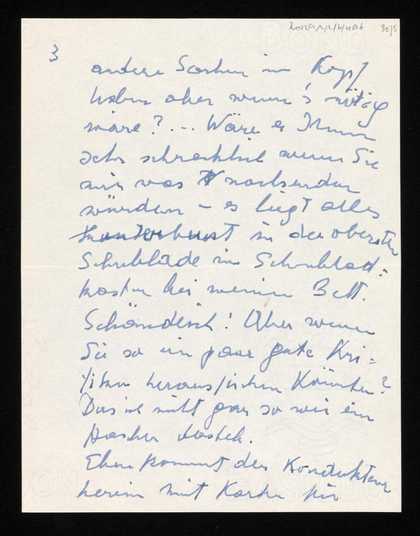 3
andere Sachen im Kopf
haben aber wenn's nötig
wäre? ... Wäre es Ihnen
sehr schrecklich wenn Sie
mir was nachsenden
würden – es liegt alles
in der obersten
Schublade im Schublad-
kasten bei meinem Bett.
Schändlich! Aber wenn
Sie so ein paar gute Kri-
tiken heraussuchen könnten?
Das ist nicht gar so wie ein
Eben kommt der Kondukteur
herein mit Karten für